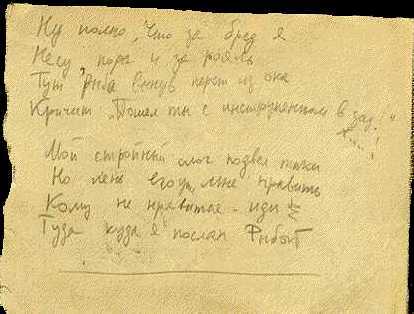 Ну полно, Что за бред я
Несу, пора и за рояль
Тут рыба вынув перст из ока
Кричит „Пошел ты с инструментом в зад!"
х...!
Мой стройный слог подвел
Но лень его уж мне править
Кому не нравится - иди
Туда куда я послан Рыбой